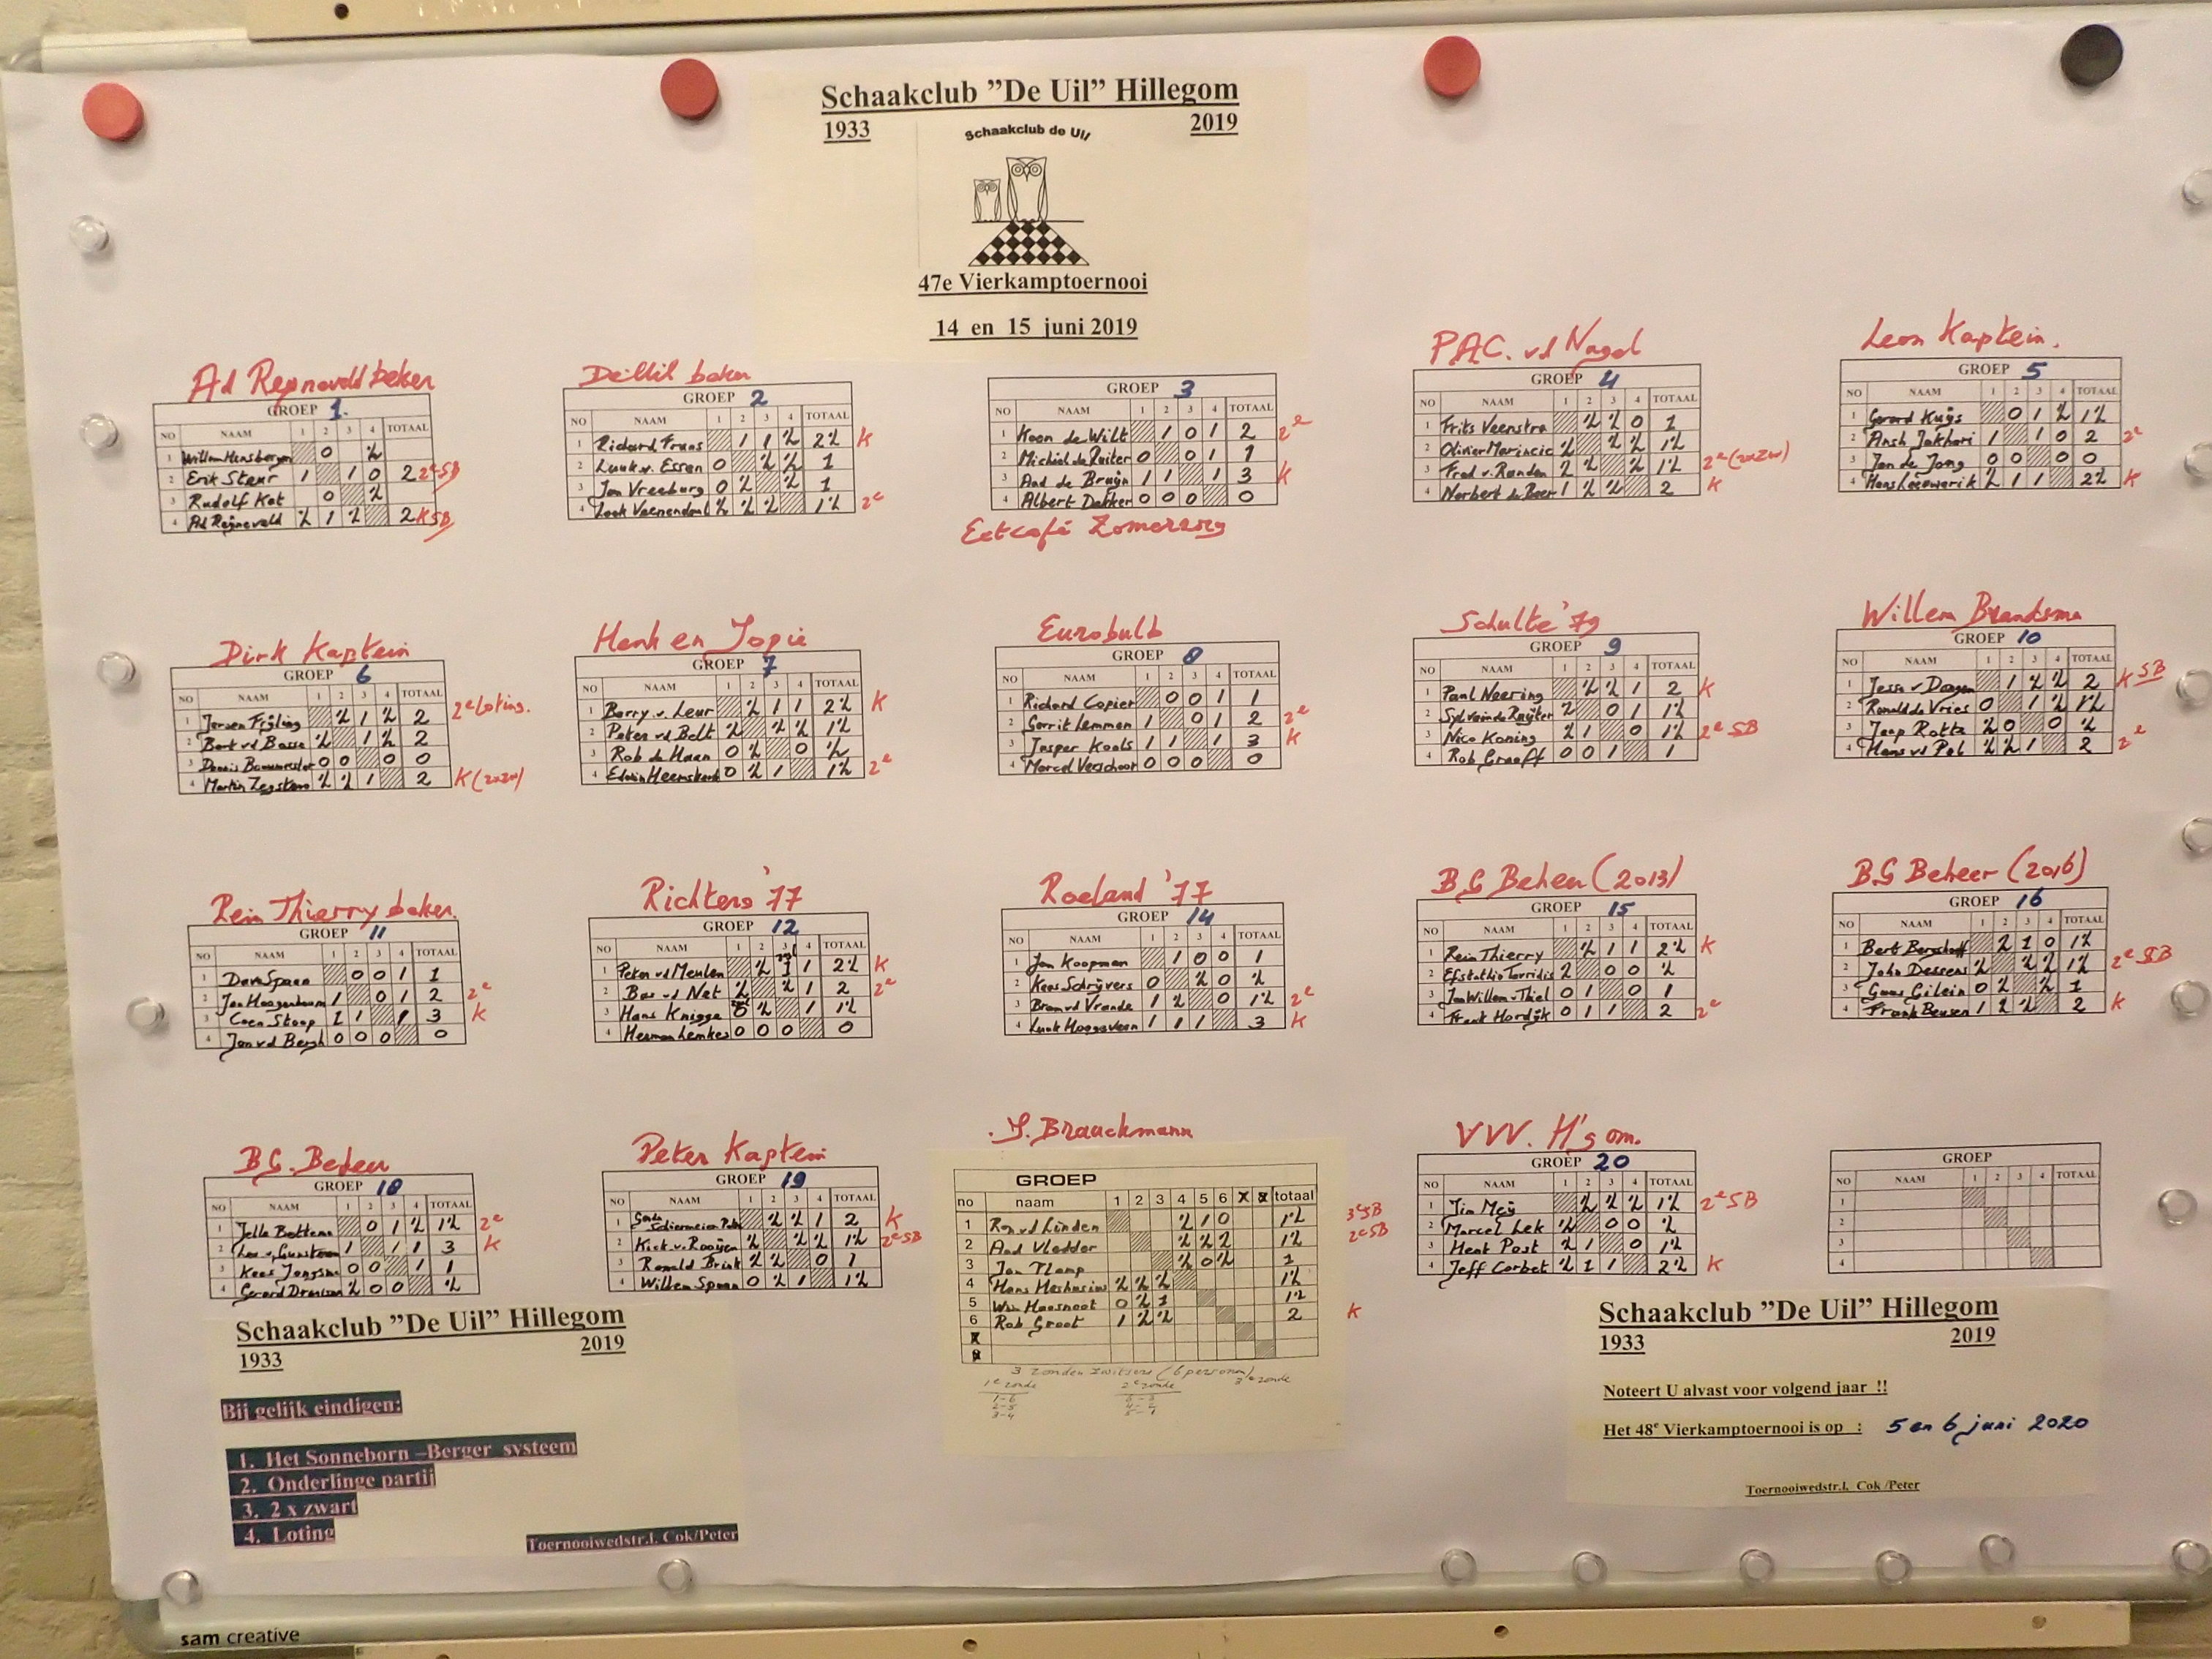 Schaakclub ”De Uil” Hillegom
1933 2019
Schaakclub de Uil
47e Vierkamptoernooi
14 en 15 juni 2019
Ad Reijneveld beker
GROEP 1.
NO NAAM 1 2 3 4 TOTAAL
1 Willem Hensbergen 0 ½
2 Erik Steur 1 1 0 2 2e SB
3 Rudolf Kat 0 ½
4 Ad Reijneveld ½ 1 ½ 2 K SB
De Uil beker
GROEP 2
NO NAAM 1 2 3 4 TOTAAL
1 Richard Fruns 1 1 ½ 2½ K
2 Luuk v. Essen 0 ½ ½ 1
3 Jan Vreeburg 0 ½ ½ 1
4 Loek Veenendaal ½ ½ ½ 1½ 2e
GROEP 3
NO NAAM 1 2 3 4 TOTAAL
1 Koen de Wilt 1 0 1 2 2e
2 Michiel de Ruiter 0 0 1 1
3 Aad de Bruijn 1 1 1 3 K
4 Albert Dekker 0 0 0 0
Eetcafé Zomerzorg
P.A.C. vd Nagel
GROEP 4
NO NAAM 1 2 3 4 TOTAAL
1 Frits Veenstra ½ ½ 0 1
2 Olivier Marincic ½ ½ ½ 1½
3 Fred v. Randen ½ ½ ½ 1½ 2e (2xZW)
4 Norbert de Beer 1 ½ ½ 2 K
Leon Kaptein.
GROEP 5
NO NAAM 1 2 3 4 TOTAAL
1 Gerard Kuijs 0 1 ½ 1½
2 Ansh Jakhari 1 1 0 2 2e
3 Jan de Jong 0 0 0 0
4 Hans Leeuwerik ½ 1 1 2½ K
Dirk Kaptein
GROEP 6
NO NAAM 1 2 3 4 TOTAAL
1 Jeroen Frijling ½ 1 ½ 2 2e Loting.
2 Bert vd Basse ½ 1 ½ 2
3 Dennis 0 0 0 0
4 Martin Zegstroo ½ ½ 1 2 K (2xzw)
Henk en Jopie
GROEP 7
NO NAAM 1 2 3 4 TOTAAL
1 Barry v. Leur ½ 1 1 2½ K
2 Peter vd Belt ½ ½ ½ 1½
3 Rob de Haan 0 ½ 0 ½
4 Edwin Heemskerk 0 ½ 1 1½ 2e
Eurobulb
GROEP 8
NO NAAM 1 2 3 4 TOTAAL
1 Richard Copier 0 0 1 1
2 Gerrit Lemmen 1 0 1 2 2e
3 Jasper Koots 1 1 1 3 K
4 Marcel Verschoor 0 0 0 0
Schulte '79
GROEP 9
NO NAAM 1 2 3 4 TOTAAL
1 Paul Neering ½ ½ 1 2 K
2 Sylvain de Ruijter ½ 0 1 1½
3 Nico Koning ½ 1 0 1½ 2e SB
4 Rob Graaff 0 0 1 1
Willem Brandsma
GROEP 10
NO NAAM 1 2 3 4 TOTAAL
1 Jesse v Dongen 1 ½ ½ 2 K SB
2 Ronald de Vries 0 1 ½ 1½
3 Jaap Rotte ½ 0 0 ½
4 Hans vd Pol ½ ½ 1 2 2e
Rein Thierry beker.
GROEP 11
NO NAAM 1 2 3 4 TOTAAL
1 Dave Spaan 0 0 1 1
2 Jan Hoogenboom 1 0 1 2 2e
3 Coen Stoop 1 1 1 3 K
4 Jan vd Bergh 0 0 0 0
Richters '77
GROEP 12
NO NAAM 1 2 3 4 TOTAAL
1 Peter vd Meulen ½ 1 1 2½ K
2 Bas vd Net ½ ½ 1 2 2e
3 Hans Knigge 0 ½ 1 1½
4 Herman Lemkes 0 0 0 0
Roeland '77
GROEP 14
NO NAAM 1 2 3 4 TOTAAL
1 Jan Koopman 1 0 0 1
2 Kees Schrijvers 0 ½ 0 ½
3 Bram vd Vrande 1 ½ 0 1½ 2e
4 Luuk Hoogeveen 1 1 1 3 K
B.G Beheer (2013)
GROEP 15
NO NAAM 1 2 3 4 TOTAAL
1 Rein Thierry ½ 1 1 2½ K
2 Efstathio Tavridis ½ 0 0 ½
3 Jan Willem v Thiel 0 1 0 1
4 Frank Hordijk 0 1 1 2 2e
B.G Beheer (2016)
GROEP 16
NO NAAM 1 2 3 4 TOTAAL
1 Bert ½ 1 0 1½
2 John Dessens ½ ½ ½ 1½ 2e SB
3 Guus Gilein 0 ½ ½ 1
4 Frank Beusen 1 ½ ½ 2 K
B.G. Beheer
GROEP 18
NO NAAM 1 2 3 4 TOTAAL
1 Jelle Bottema 0 1 ½ 1½ 2e
2 1 1 1 3 K
3 Kees Jongsma 0 0 1 1
4 Gerard ½ 0 0 ½
Peter Kaptein
GROEP 19
NO NAAM 1 2 3 4 TOTAAL
1 Gerda Schiermeier ½ ½ 1 2 K
2 Kick v. Rooijen ½ ½ ½ 1½ 2e SB
3 Ronald Brink ½ ½ 0 1
4 Willem Spaan 0 ½ 1 1½
J. Brauckmann
GROEP
no naam 1 2 3 4 5 6 totaal
1 Ron vd Linden ½ 1 0 1½ 3e SB
2 Aad Vledder ½ ½ ½ 1½ 2e SB
3 Jan Tlamp ½ 0 ½ 1
4 Hans ½ ½ ½ 1½
5 Wim Haasnoot 0 ½ 1 1½
6 Rob Groot 1 ½ ½ 2 K
3 ronden zwitsers (6 personen)
1e ronde 2e ronde 3e ronde
1-6
2-5
3-4
VVV. H'gom.
GROEP 20
NO NAAM 1 2 3 4 TOTAAL
1 Tim Meij ½ ½ ½ 1½ 2e SB
2 Marcel Lek ½ 0 0 ½
3 Henk Post ½ 1 0 1½
4 Jeff Corbet ½ 1 1 2½ K
GROEP
NO NAAM 1 2 3 4 TOTAAL
1
2
3
4
Schaakclub ”De Uil” Hillegom
1933 2019
Bij gelijk eindigen:
1. Het Sonneborn –Berger systeem
2. Onderlinge partij
3. 2 x zwart
4. Loting
Toernooiwedstr.l. Cok/Peter
Schaakclub ”De Uil” Hillegom
1933 2019
Noteert U alvast voor volgend jaar !!
Het 48e Vierkamptoernooi is op : 5 en 6 juni 2020
Toernooiwedstr.l. Cok /Peter
sam creative